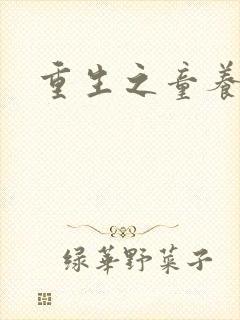 重生之童养
绿华野菜子